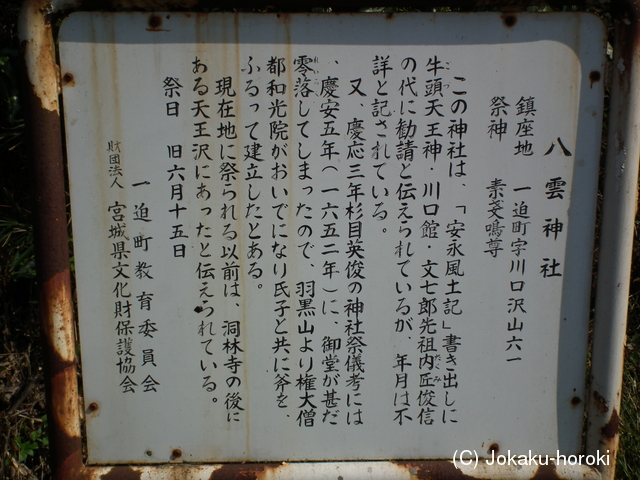 八雲神社
鎮座地　一迫町字川口沢山六一
祭神　素戔嗚尊
この神社は、「安永風土記」書き出しに
牛頭天王神・川口館・文七郎先祖内匠俊信
の代に勧請と伝えられているが、年月は不
詳と記されている。
又、慶応三年杉目英俊の神社祭儀考には
、慶安五年（一六五二年）に、御堂が甚だ
零落してしまったので、羽黒山より権大僧
都和光院がおいでになり氏子と共に斧を、
ふるって建立したとある。
現在地に祭られる以前は、洞林寺の後に
ある天王沢にあったと伝えられている。
祭日　旧六月十五日
一迫町教育委員会
財団法人　宮城県文化財保護協会
(C) Jokaku-horoki